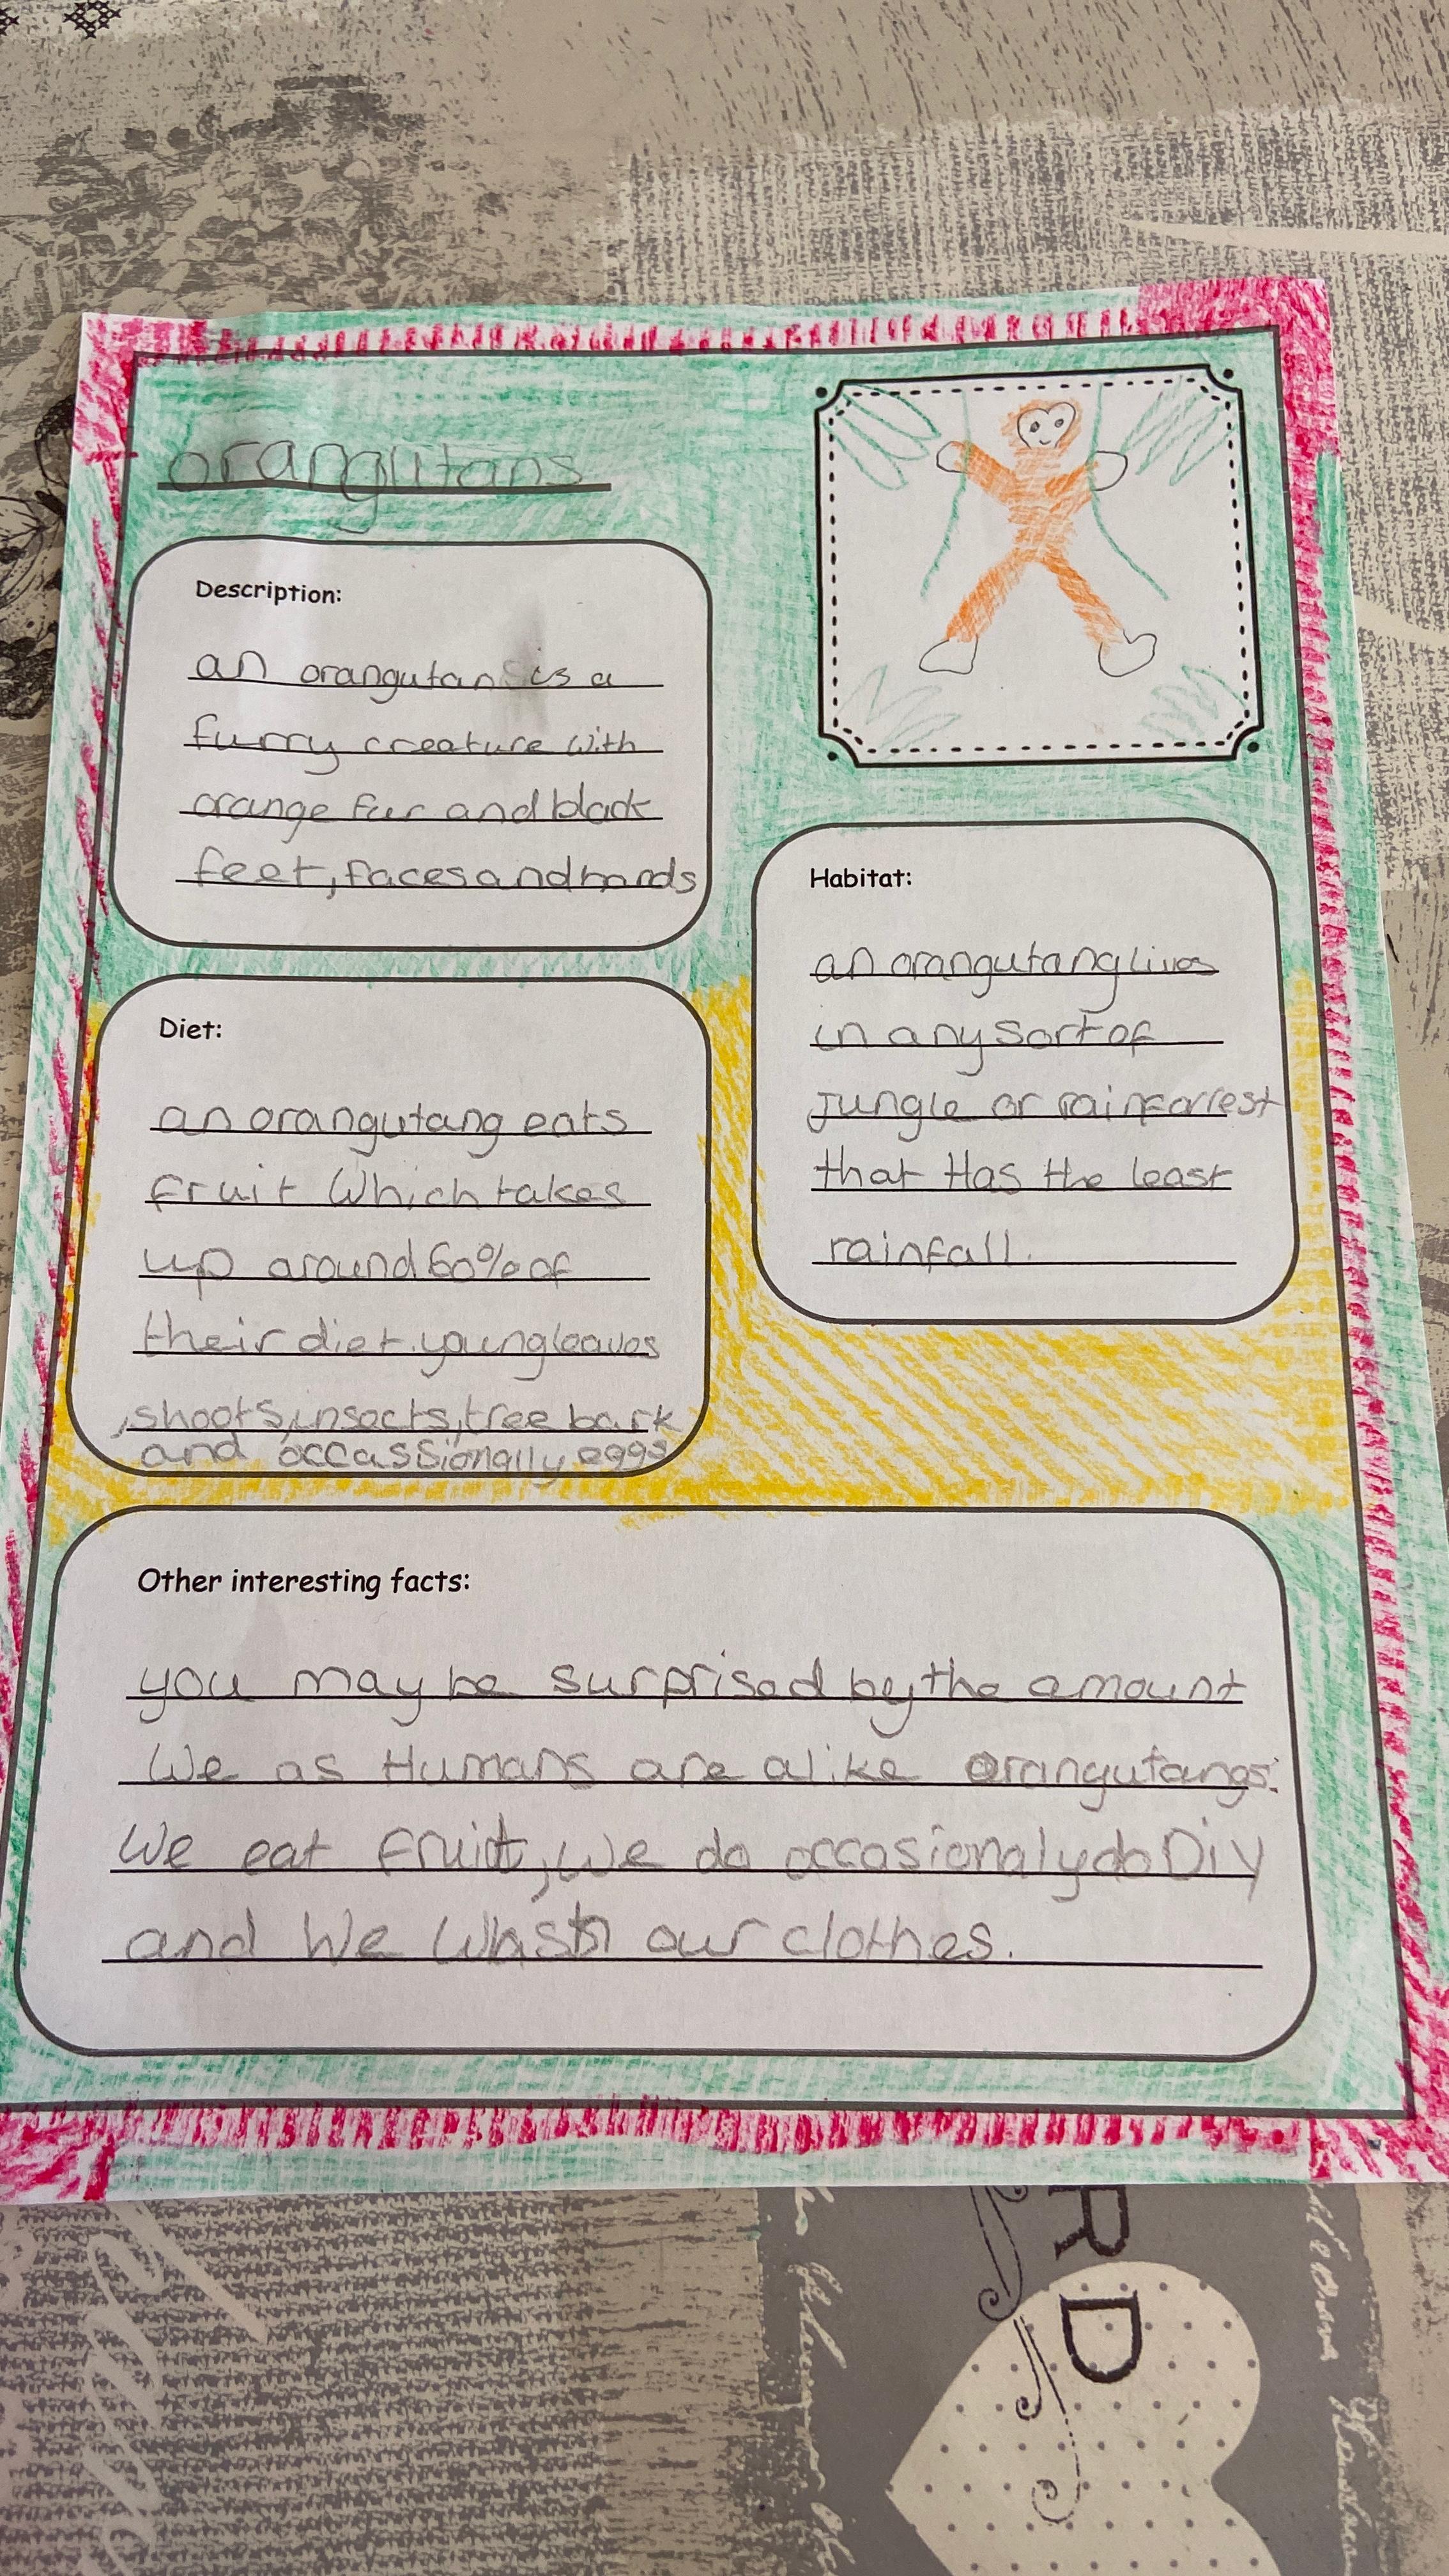 orangutans
Description:
an orangutan is a
furry creature with
orange fur and black
feet, faces and hands
Habitat:
an orangutang lives
in any sort of
jungle or rainforrest
that Has the least
rainfall.
Diet:
an orangutang eats
fruit Which takes
up around 60% of
their diet. young leaves
, shoots, insects, tree bark
and occassionally eggs
Other interesting facts:
you may be surprised by the amount
We as Humans are alike orangutangs:
We eat fruit, we do occasionaly do Diy
and We Whash our clothes.
RD